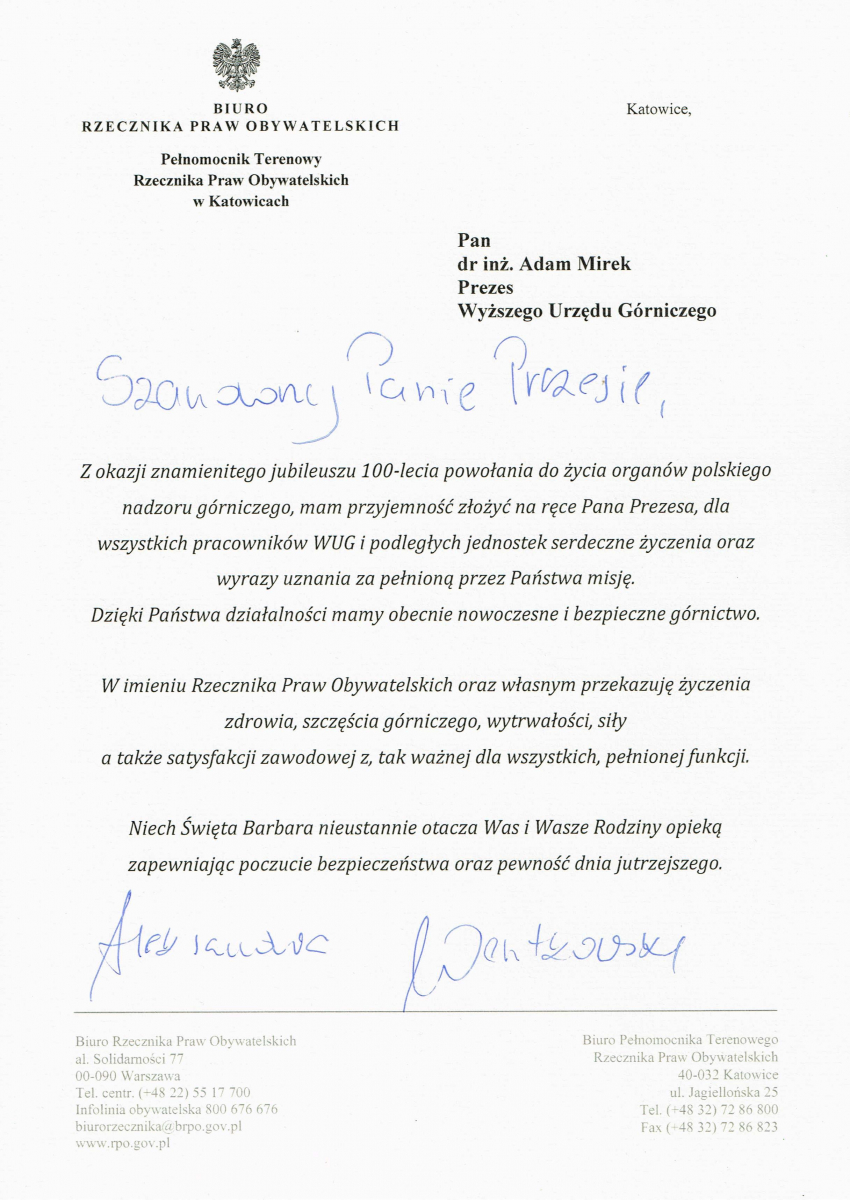 BIURO
RZECZNIKA PRAW OBYWATELSKICH
Pełnomocnik Terenowy
Rzecznika Praw Obywatelskich
w Katowicach
Katowice,
Pan
dr inż. Adam Mirek
Prezes
Wyższego Urzędu Górniczego
Szanowny Panie Prezesie,
Z okazji znamienitego jubileuszu 100-lecia powołania do życia organów polskiego
nadzoru górniczego, mam przyjemność złożyć na ręce Pana Prezesa, dla
wszystkich pracowników WUG i podległych jednostek serdeczne życzenia oraz
wyrazy uznania za pełnioną przez Państwa misję.
Dzięki Państwa działalności mamy obecnie nowoczesne i bezpieczne górnictwo.
W imieniu Rzecznika Praw Obywatelskich oraz własnym przekazuję życzenia
zdrowia, szczęścia górniczego, wytrwałości, siły
a także satysfakcji zawodowej z, tak ważnej dla wszystkich, pełnionej funkcji.
Niech Święta Barbara nieustannie otacza Was i Wasze Rodziny opieką
zapewniając poczucie bezpieczeństwa oraz pewność dnia jutrzejszego.
Aleksandra Wentkowska
Biuro Rzecznika Praw Obywatelskich
al. Solidarności 77
00-090 Warszawa
Tel. centr. (+48 22) 55 17 700
Infolinia obywatelska 800 676 676
biurorzecznika@brpo.gov.pl
www.rpo.gov.pl
Biuro Pełnomocnika Terenowego
Rzecznika Praw Obywatelskich
40-032 Katowice
ul. Jagiellońska 25
Tel. (+48 32) 72 86 800
Fax (+48 32) 72 86 823